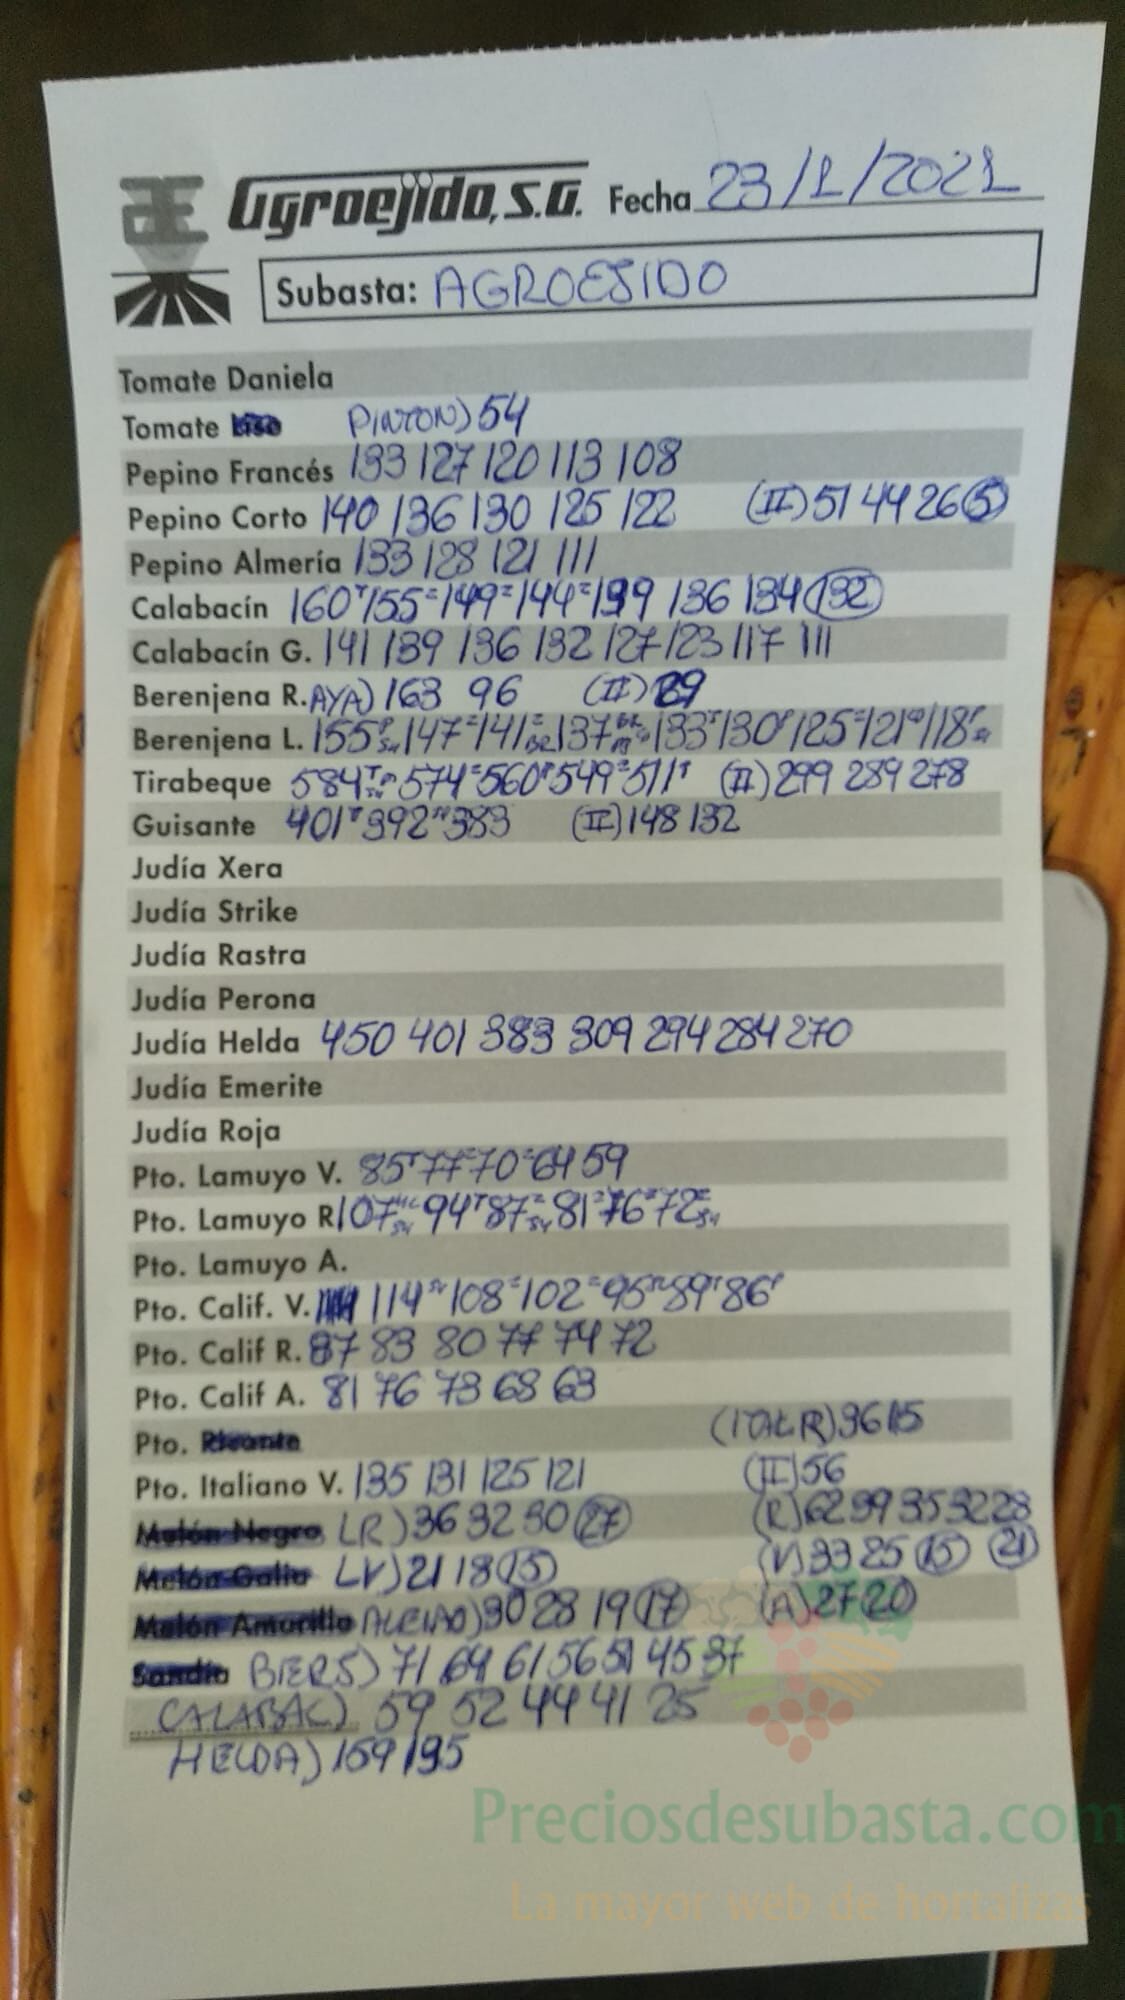 Agroejido, S.A. Fecha 23/1/2021
Subasta: AGROEJIDO
Tomate Daniela
Tomate PINTON) 54
Pepino Francés 133 127 120 113 108
Pepino Corto 140 136 130 125 122 (II) 51 44 26 5
Pepino Almería 133 128 121 111
Calabacín 160 155 149 144 139 136 134 132
Calabacín G. 141 139 136 132 127 123 117 111
Berenjena R. AYA) 163 96 (II) 29
Berenjena L. 155 147 141 137 133 130 125 121 118
Tirabeque 584 574 560 549 511 (II) 299 289 278
Guisante 401 392 383 (II) 148 132
Judía Xera
Judía Strike
Judía Rastra
Judía Perona
Judía Helda 450 401 383 309 294 284 270
Judía Emerite
Judía Roja
Pto. Lamuyo V. 85 77 70 64 59
Pto. Lamuyo R 107 94 87 81 76 72
Pto. Lamuyo A.
Pto. Calif. V. 114 108 102 95 89 86
Pto. Calif R. 87 83 80 77 74 72
Pto. Calif A. 81 76 73 68 63
Pto. Picante (ITAL R) 36 15
Pto. Italiano V. 135 131 125 121 (II) 56
Melón Negro LR) 36 32 30 27 (R) 62 39 35 32 28
Melón Galia LV) 21 18 15 (V) 33 25 15 21
Melón Amarillo 30 28 19 17 (A) 27 20
Sandía BIERS) 71 64 61 56 51 45 37
CALABAC) 59 52 44 41 25
HELDA) 159 195
Preciosdesubasta.com
La mayor web de hortalizas